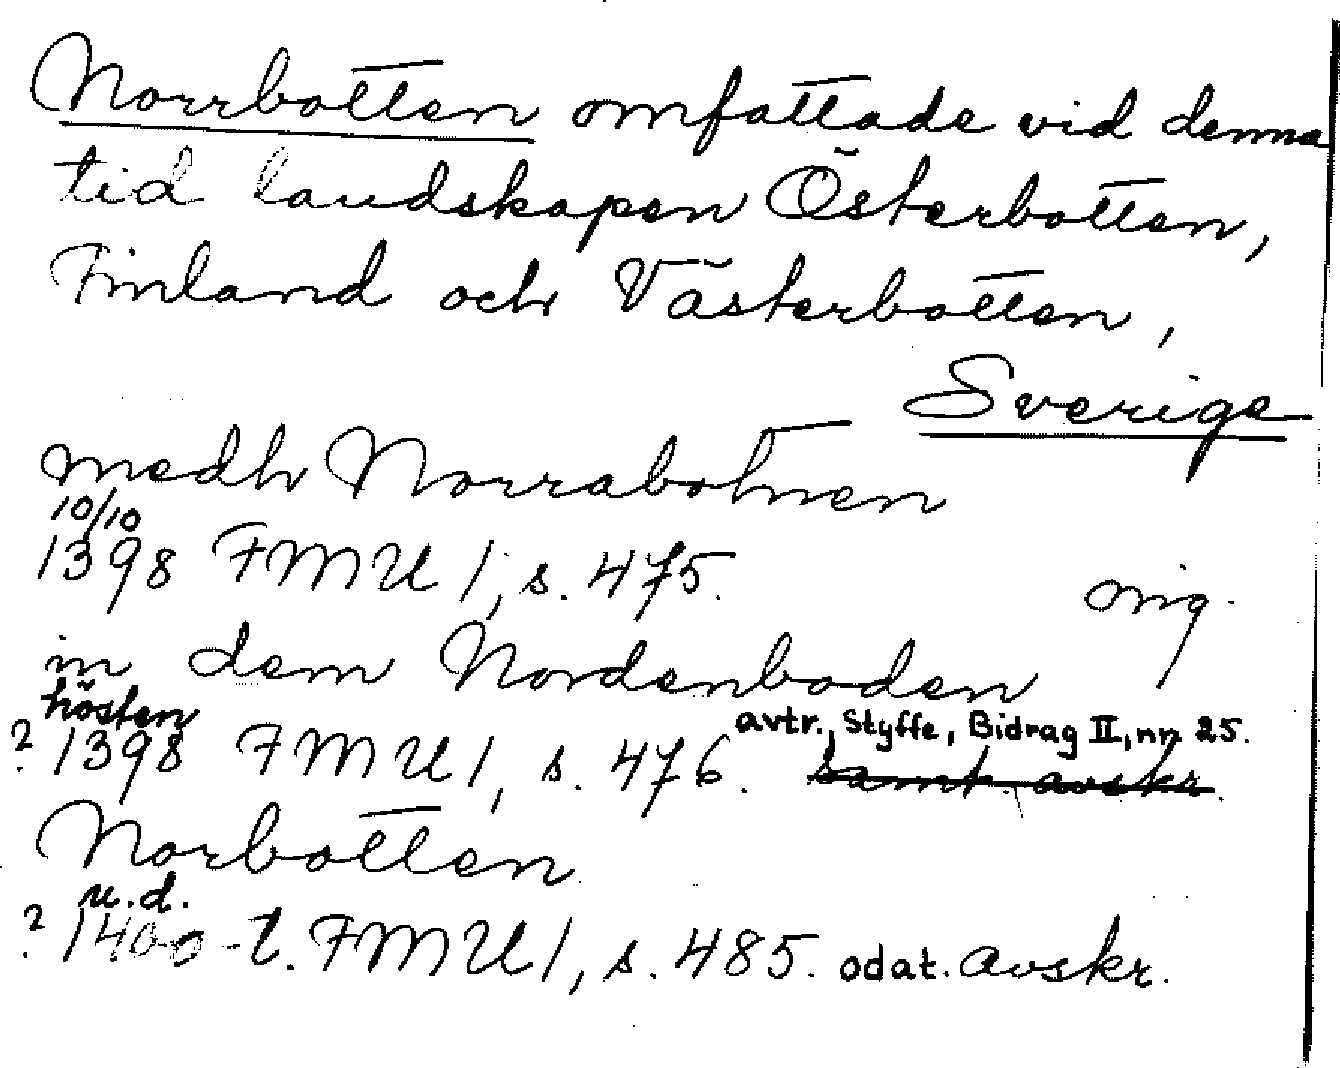 Norrbotten omfattade vid denna
tid landskapen Österbotten,
Finland och Västerbotten,
Sverige
medh Norrabotnen
10/10
1398 FMU I, s. 475.
orig.
in dem Nordenboden
hösten
? 1398 FMU I, s. 476. avtr., Styffe, Bidrag II, nr 25.
samt avskr.
Norbotten
u.d.
? 1400-t. FMU I, s. 485. odat. avskr.